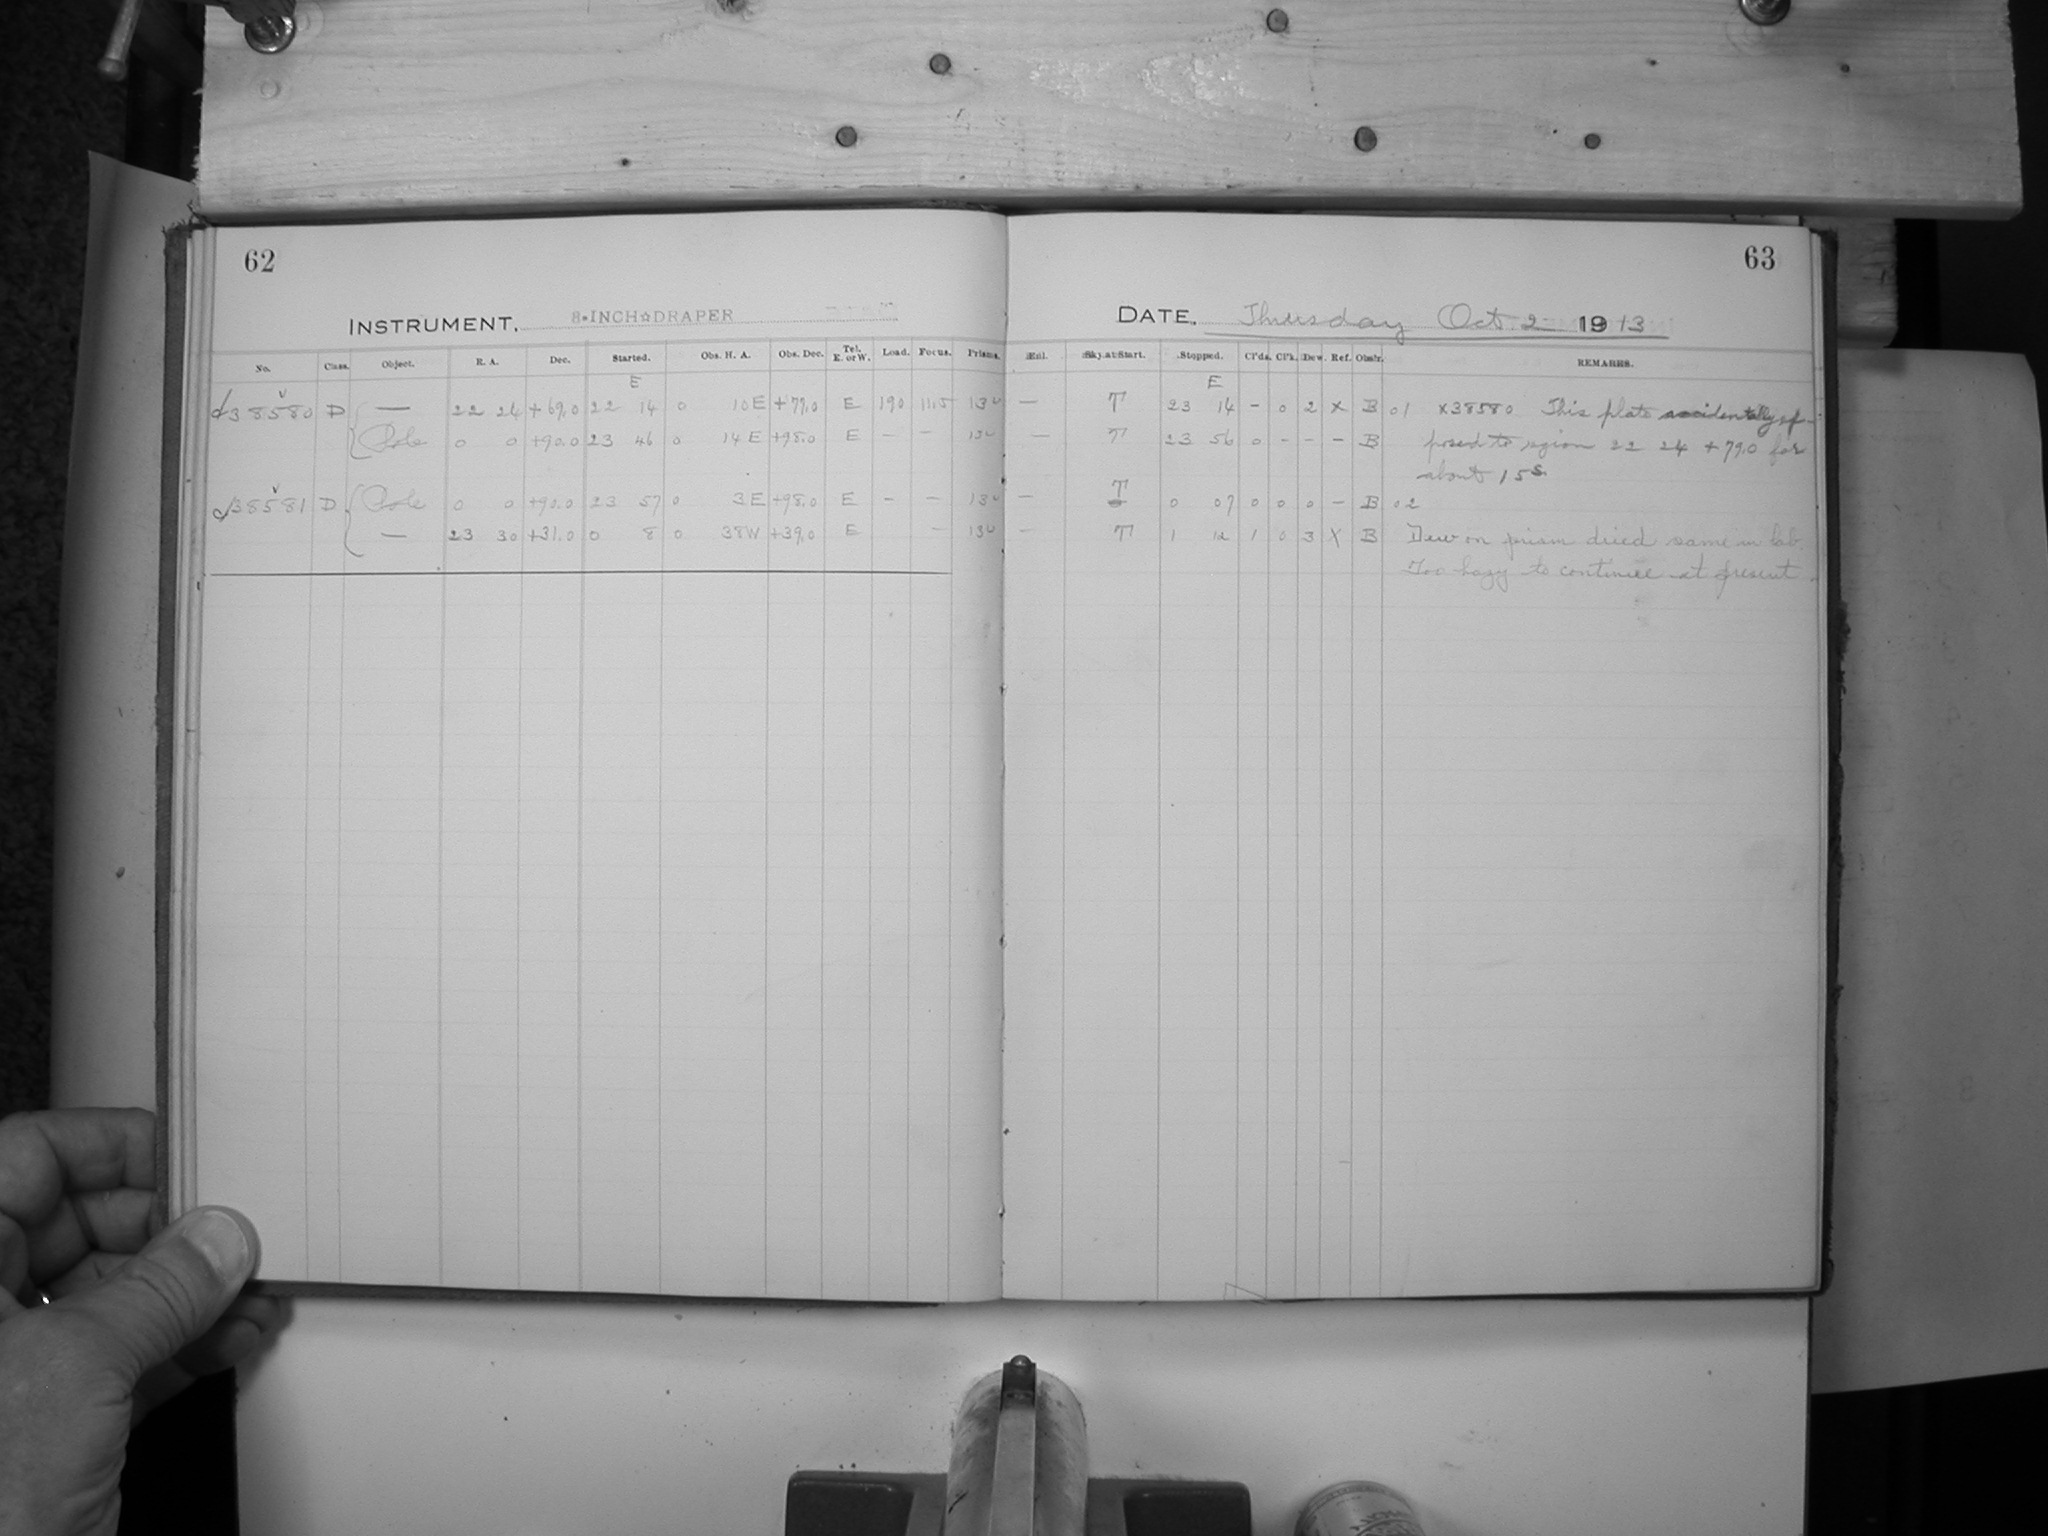 62
63
INSTRUMENT. 8-INCH☆DRAPER
DATE. Thursday Oct 2 1913
No. Class. Object. R. A. Dec. Started. Obs. H. A. Obs. Dec. Tel. E. or W. Load. Focus. Prisms. Eul. Sky at Start. Stopped. Cl'ds. Cl'k. Dew. Ref. Obs'r. REMARKS.
E E
d38580 D — 22 24 +69.0 22 14 0 10E +77.0 E 190 11.5 — T 23 14 - 0 2 X B 01 X38580 This plate accidentally ex-
Pole 0 0 +90.0 23 46 0 14E +98.0 E — — — T 23 56 0 - - - B posed to region 22 24 +79.0 for
about 15s
d38581 D Pole 0 0 +90.0 23 57 0 3E +98.0 E — — — T 0 07 0 0 0 — B 02
— 23 30 +31.0 0 8 0 38W +39.0 E — — T 1 12 1 0 3 X B Dew on prism dried same in lab.
Too hazy to continue at present.